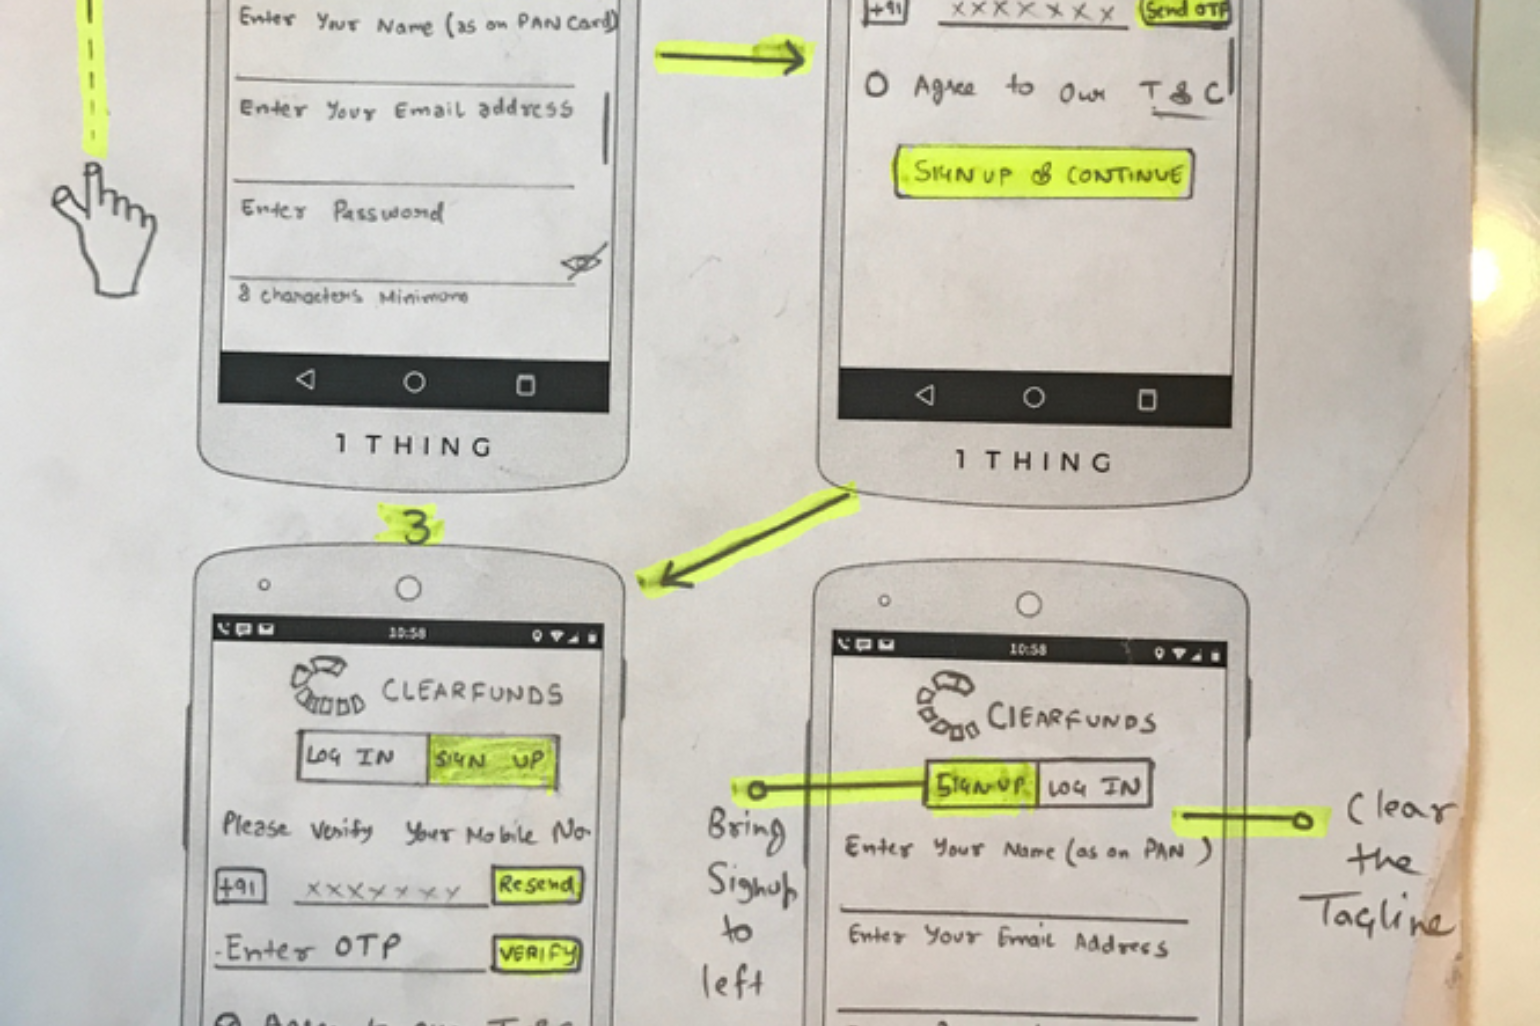 Enter Your Name (as on PAN Card)
Enter Your Email address
Enter Password
8 characters Minimum
1 THING
+91 XXXXXXX Send OTP
Agree to our T & C
SIGN UP & CONTINUE
1 THING
3
10:58
CLEARFUNDS
LOG IN SIGN UP
Please Verify Your Mobile No.
+91 XXXXXXX Resend
Enter OTP VERIFY
Agree to our T & C
10:58
ClEARFUNDS
SIGN UP LOG IN
Enter Your Name (as on PAN)
Enter Your Email Address
Bring
Signup
to
left
Clear
the
Tagline